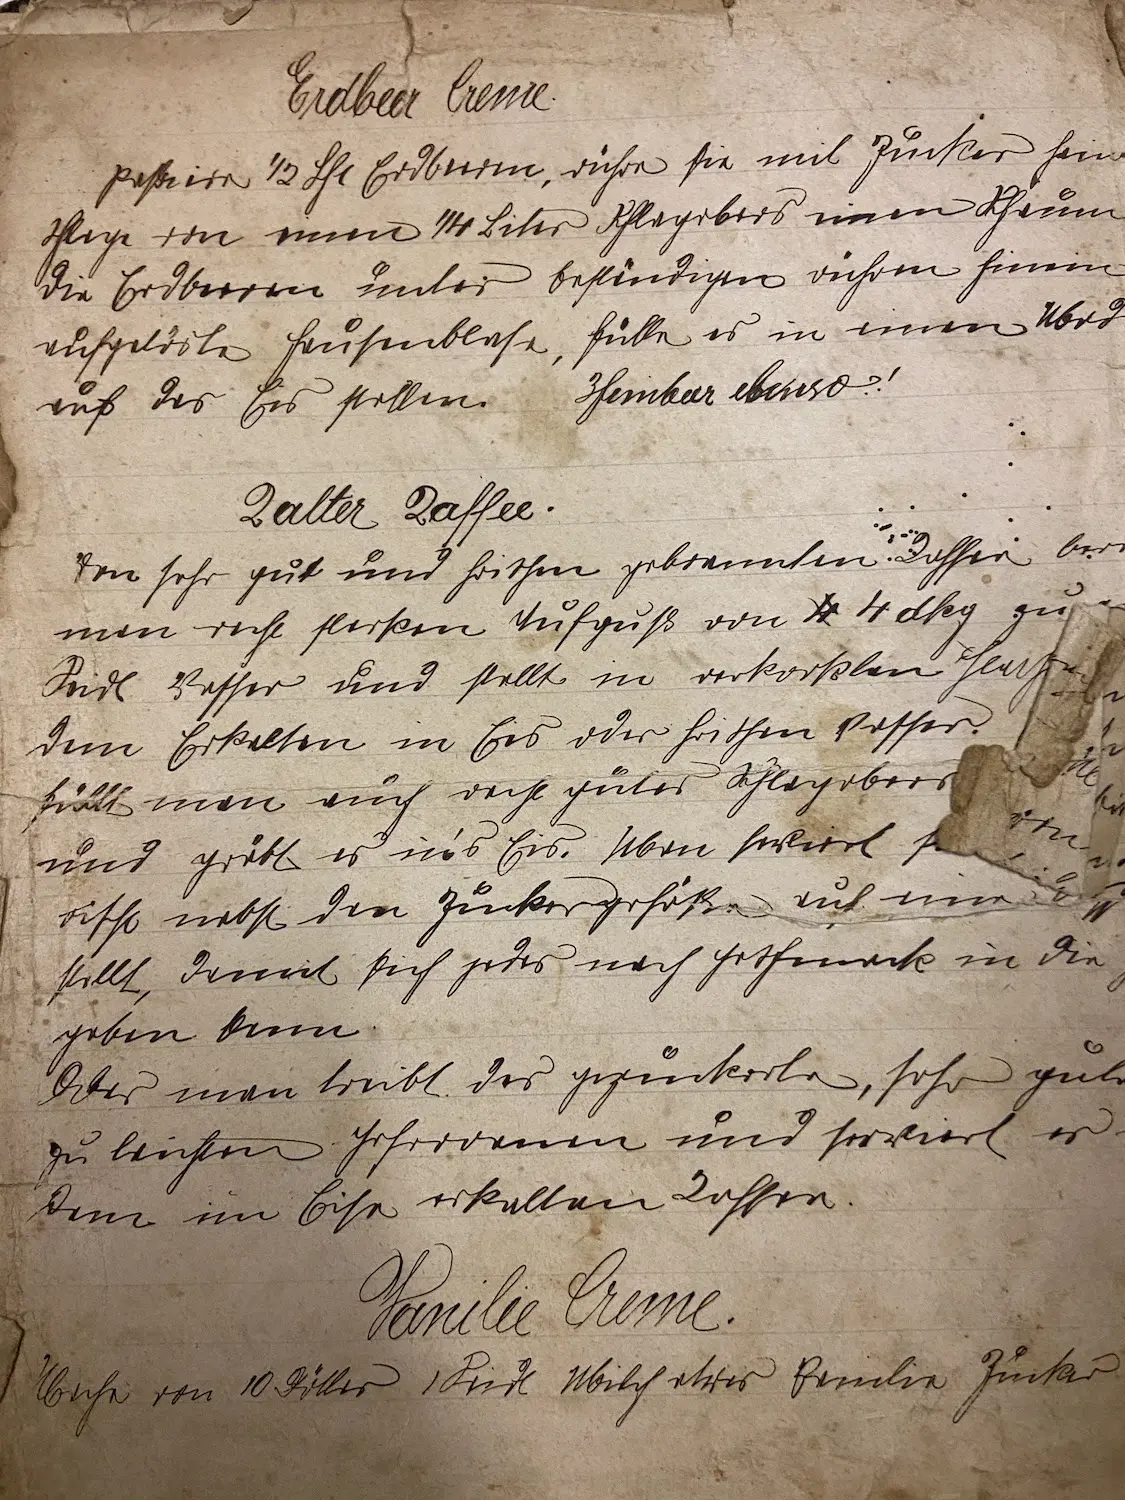 Erdbeer Creme.
Passiere 1/2 Lit Erdbeeren, rühre sie mit Zucker fein
schlage von einen 1/4 Liter Schlagobers einen Schaum
die Erdbeeren unter beständigen rühren hinein
aufgelöste Hausenblase, fülle es in einen Mod
auf das Eis stellen. Himbeer ebenso!
Kalter Kaffee.
Von sehr gut und frischen gebrannten Kaffee bere
man recht starken Aufguß von 4 dkg zu
Seidl Wasser und stellt in verkorkten Flasche
dem Erkalten in Eis oder frischen Wasser.
füllt man auch recht gutes Schlagobers
und gräbt es in's Eis. Man serviert
nebst den Zuckergefäße auf eine
stellt, damit sich jedes nach Geschmack in die
geben kann.
Oder man treibt das gezuckerte, sehr gute
zu leichten Gefrorenen und serviert es
dem im Eise erkalten Kaffee.
Vanilie Creme.
Mache von 10 Dötter 1 Seidl Milch etwas Vanilie Zucker